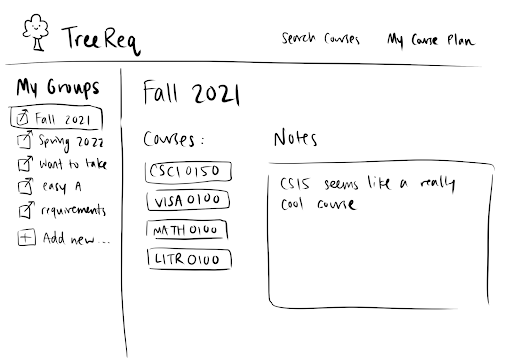 TreeReq
Search Courses
My Course Plan
My Groups
Fall 2021
Spring 2022
want to take
easy A
requirements
Add new...
Fall 2021
Courses:
CSCI 0150
VISA 0100
MATH 0100
LITR 0100
Notes
CS15 seems like a really
cool course